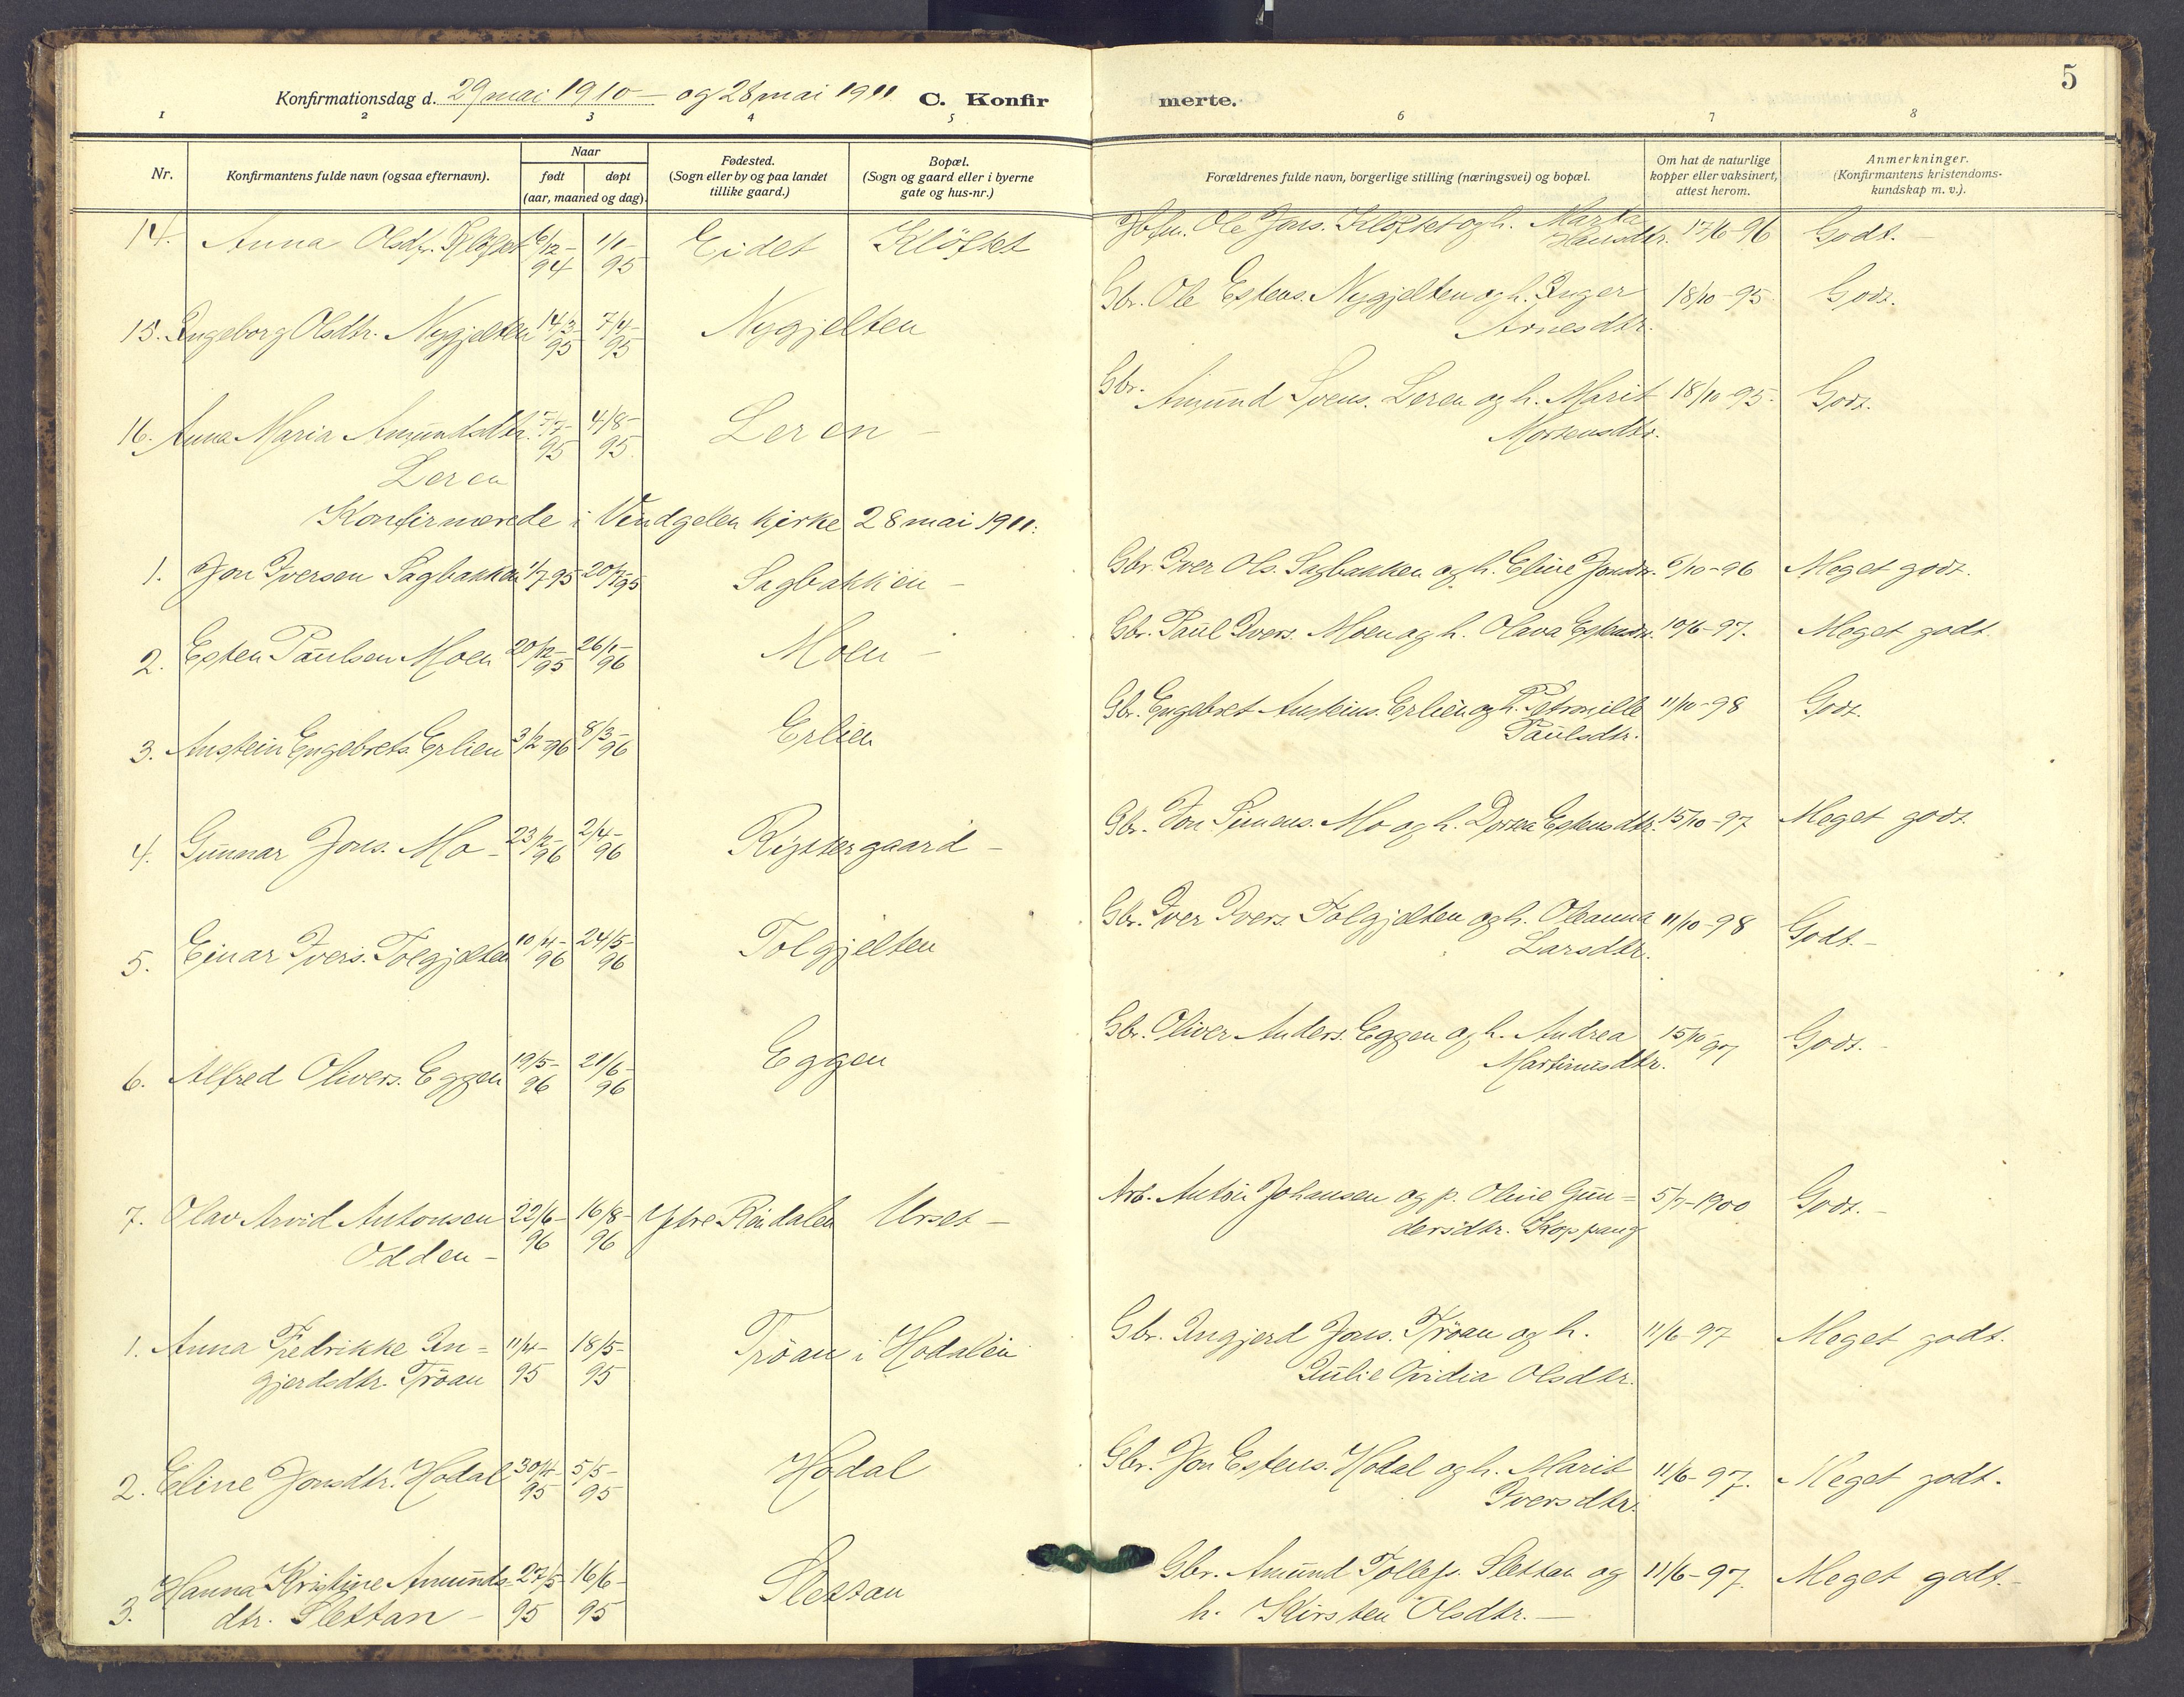 5
Konfirmationsdag d. 29 mai 1910 – og 28 mai 1911. C. Konfirmerte.
1 2 3 4 5 6 7 8
Nr. Konfirmantens fulde navn (ogsaa efternavn). Naar født døpt (aar, maaned og dag). Fødested. (Sogn eller by og paa landet tillike gaard.) Bopæl. (Sogn og gaard eller i byerne gate og hus-nr.) Forældrenes fulde navn, borgerlige stilling (næringsvei) og bopæl. Om hat de naturlige kopper eller vaksinert, attest herom. Anmerkninger. (Konfirmantens kristendoms-kundskap m. v.).
14. Anna Olsdtr. Klöftet 6/12-94 1/1-95 Eidet Klöftet Ole Jons. Klöftet og h. Marta Hansdtr. 17/6-96 Godt. –
15. Ingeborg Olsdtr. Nygjelten 14/3-95 7/4-95 Nygjelten Gbr. Ole Estens. Nygjelten og h. Inger Arnesdtr. 18/10-95 Godt.
16. Anna Maria Amundsdtr. Leren 7/7-95 4/8-95 Leren – Gbr. Amund Svens. Leren og h. Marit Mortensdtr. 18/10-95. Godt.
Konfirmerede i Vindgelen kirke 28 mai 1911.
1. Jon Iversen Sagbakken 1/7-95 20/7-95 Sagbakken – Gbr. Iver Ols. Sagbakken og h. Eline Jonsdtr. 6/10-96 Meget godt.
2. Esten Paulsen Moen 20/12-95 26/1-96 Moen – Gbr. Paul Ivers. Moen og h. Olava Estensdtr. 10/6-97. Meget godt.
3. Austein Engebrets. Erlien 3/2-96 8/3-96 Erlien Gbr. Engebret Austeins. Erlien og h. Petronille Paulsdtr. 11/10-98 Godt.
4. Gunnar Jons. Mo – 23/2-96 2/4-96 Rystergaard – Gbr. Jon Simens. Mo og h. Dortea Estensdtr. 15/10-97 Meget godt.
5. Einar Ivers. Tolgjelten 10/4-96 24/5-96 Tolgjelten Gbr. Iver Ivers. Tolgjelten og h. Oleanna Larsdtr. 11/10-98 Godt. –
6. Alfred Olivers. Eggen 19/5-96 21/6-96 Eggen Gbr. Oliver Anders. Eggen og h. Andrea Martinusdtr. 15/10-97 Godt. –
7. Olav Arvid Antonsen Odden – 22/6-96 16/8-96 Ytre Rendalen Urset – Arb. Anton Johansen og p. Oline Gundersdtr. Koppang 5/7-1900 Godt. –
1. Anna Fredrikke Ingjerdsdtr. Tröan 11/4-95 18/5-95 Tröan i Hodalen Gbr. Ingjerd Jons. Tröan og h. Julie Ovidia Olsdtr. 11/6-97 Meget godt.
2. Eline Jonsdtr. Hodal 30/4-95 5/5-95 Hodal Gbr. Jon Estens. Hodal og h. Marit Iversdtr. 11/6-97. Meget godt.
3. Hanna Kristine Amundsdtr. Slettan – 27/5-95 16/6-95 Slettan Gbr. Amund Tollefs. Slettan og h. Kirsten Olsdtr. – 11/6-97. Meget godt. –